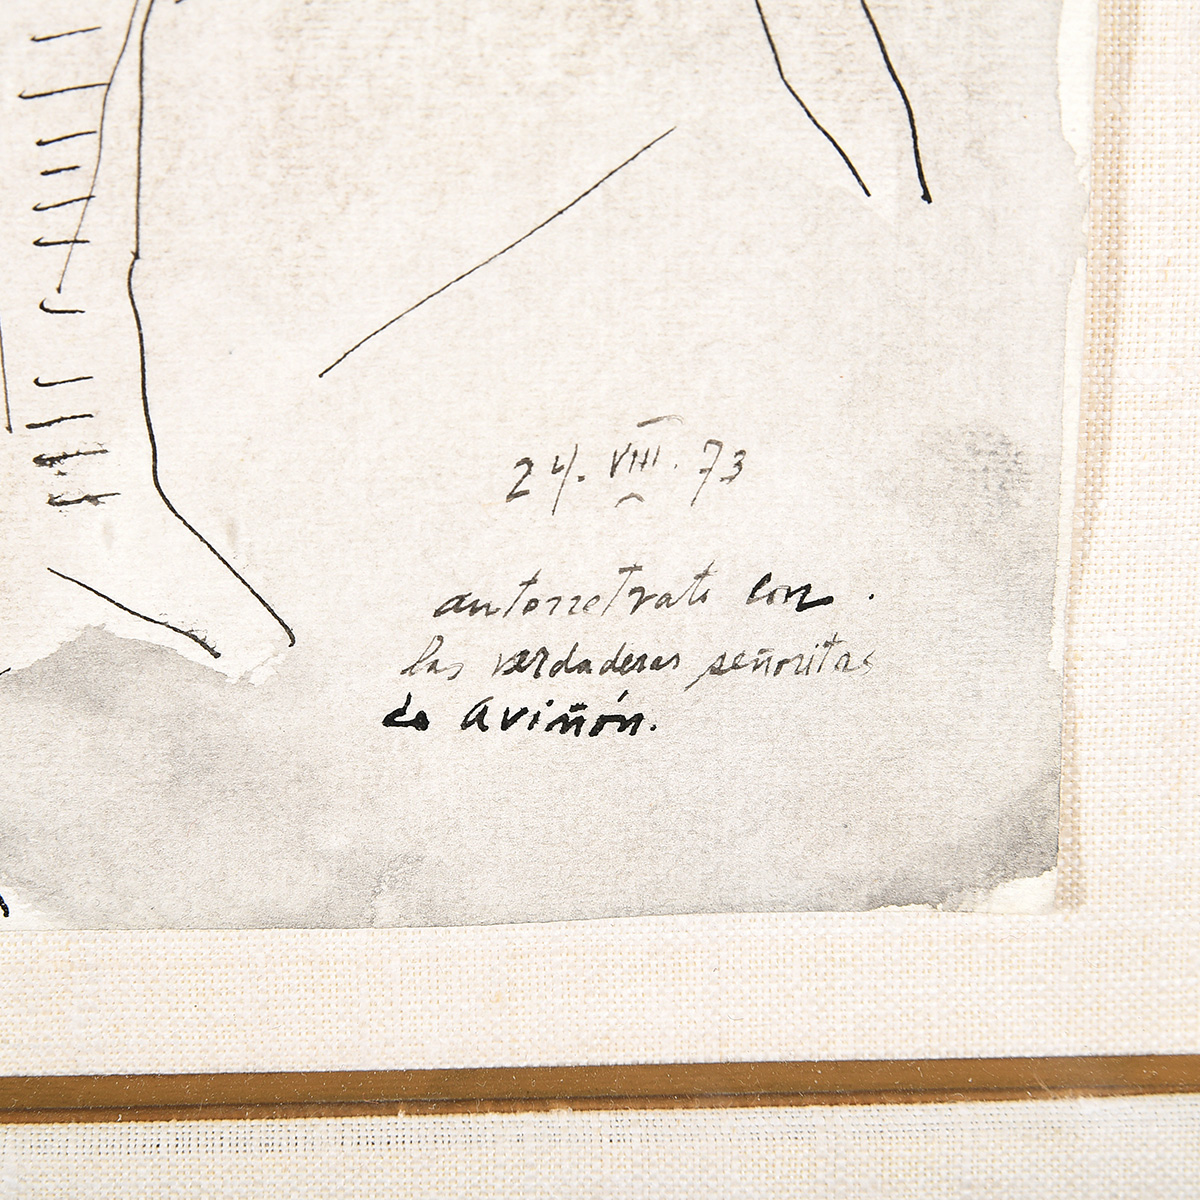 24. VIII. 73
autorretrato con.
las verdaderas señoritas
de aviñón.